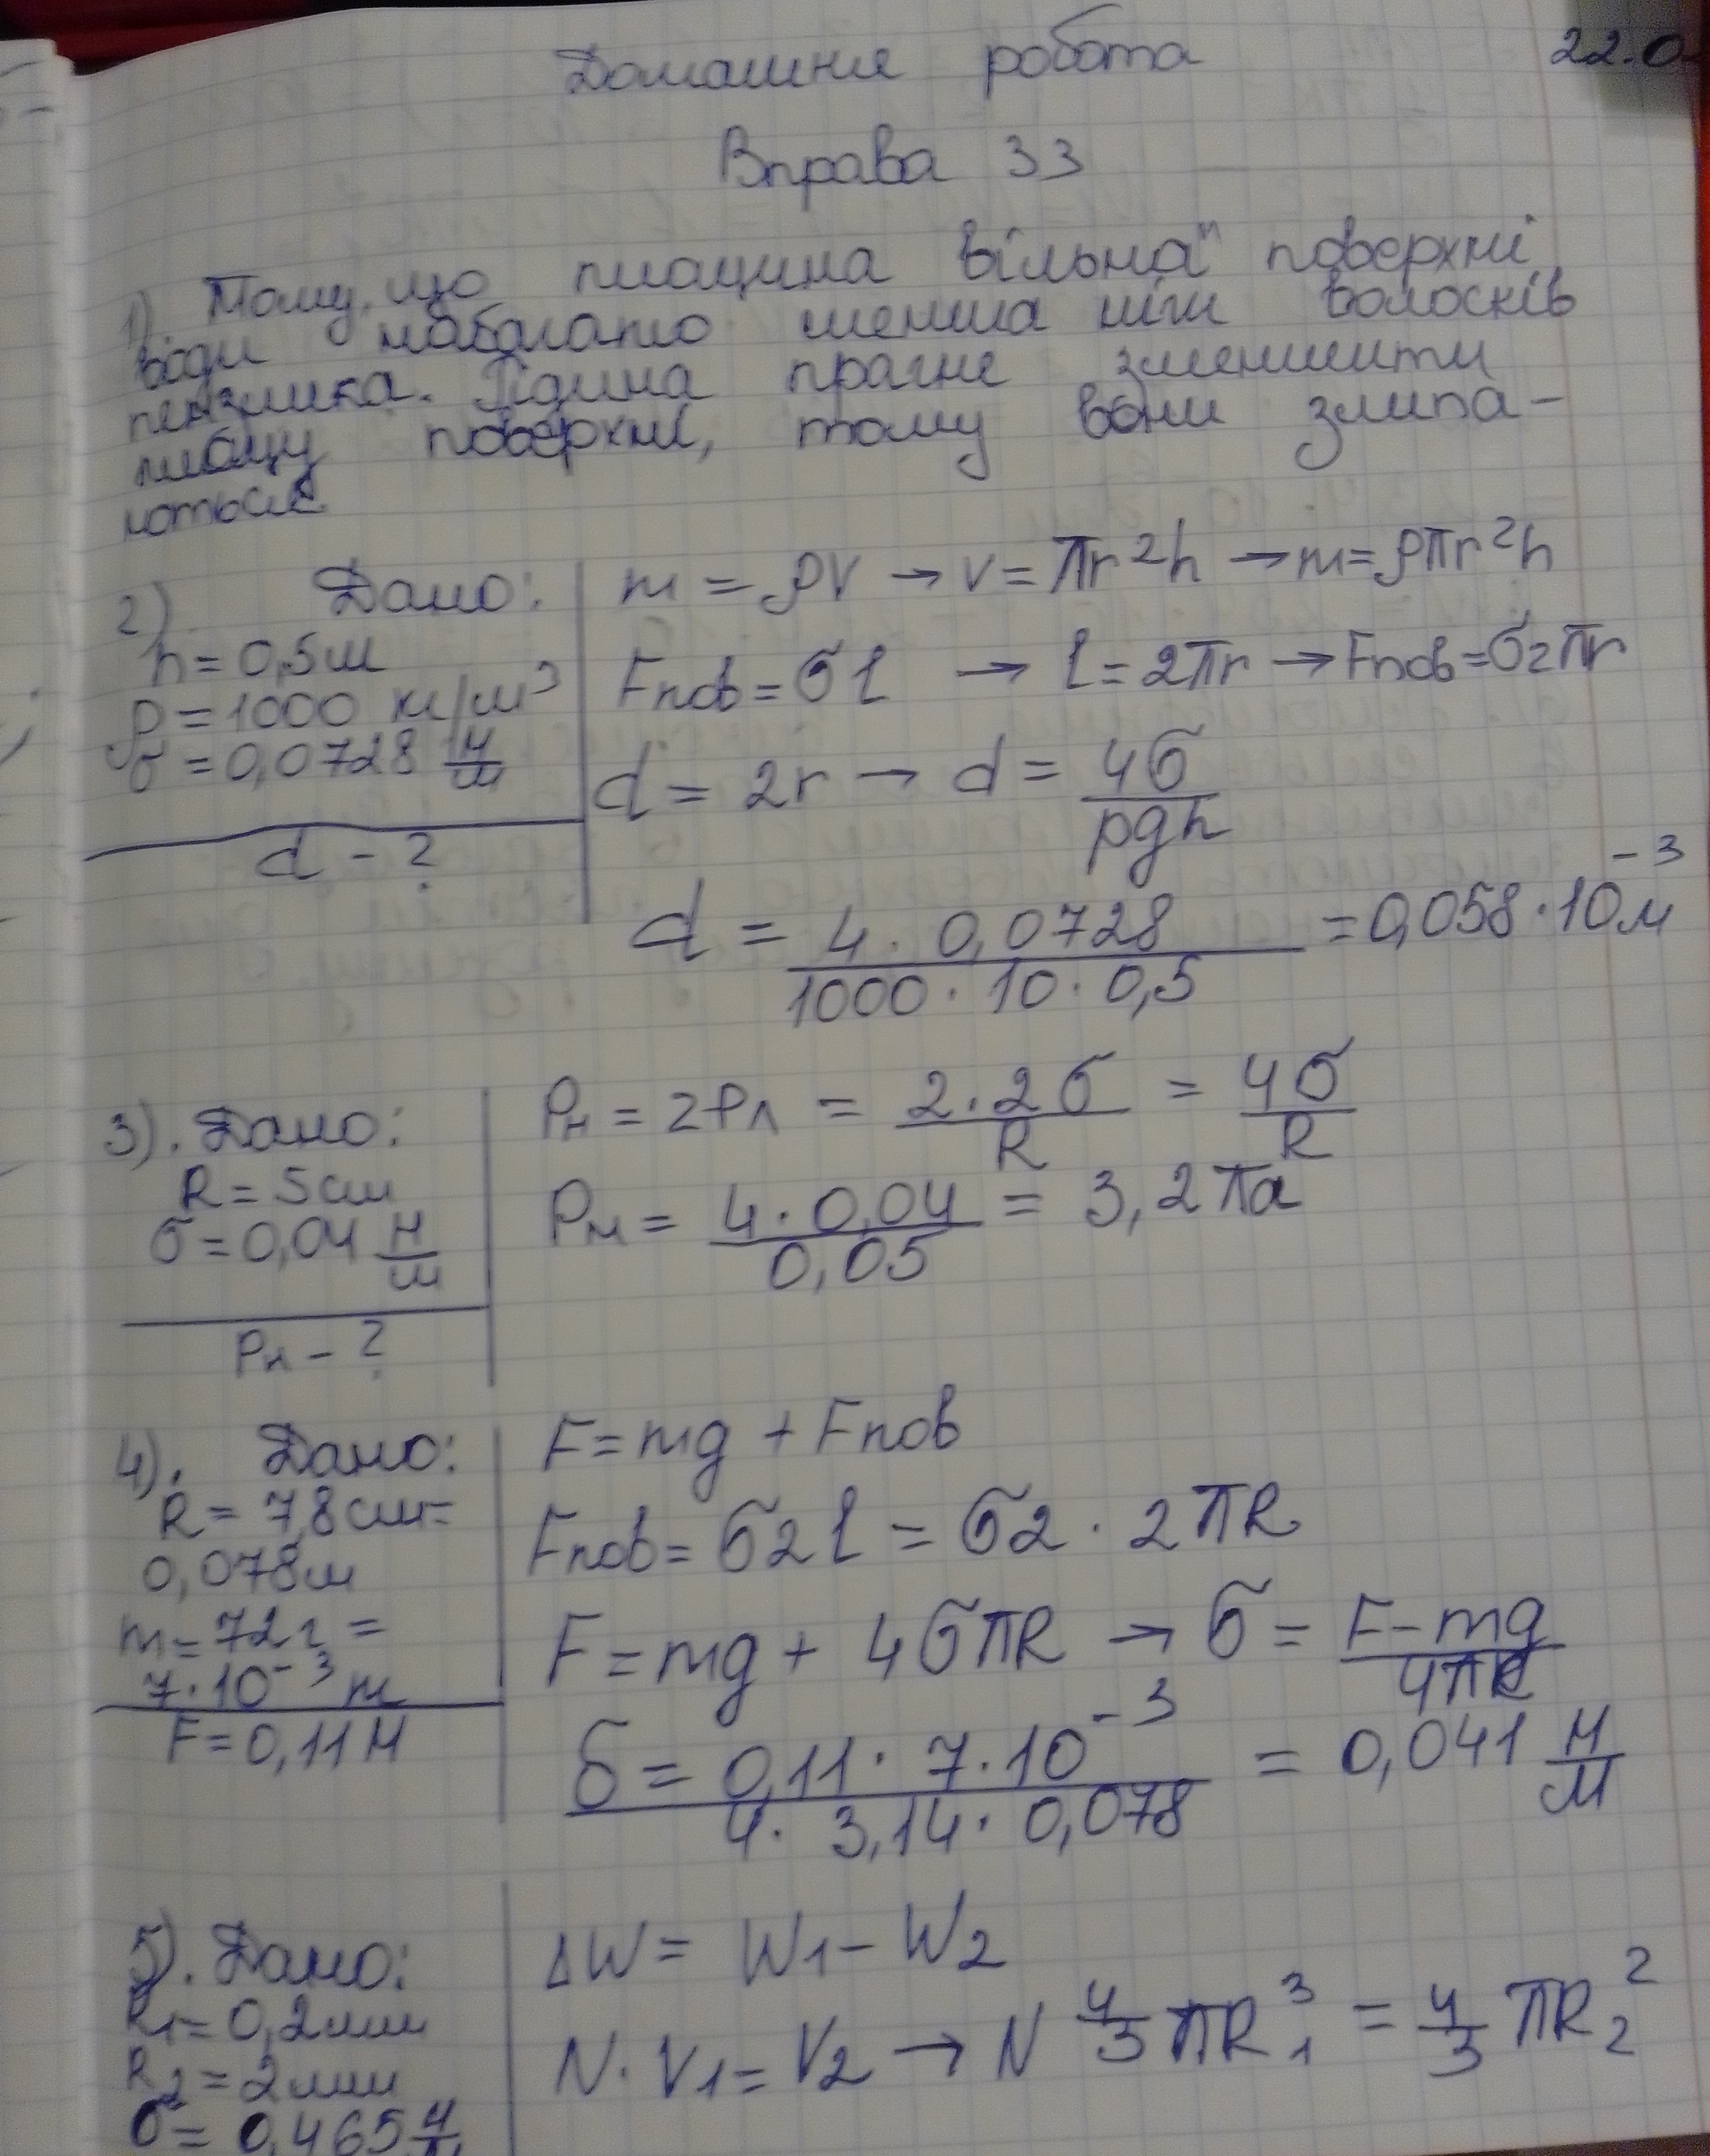 Домашня робота
22.0
Вправа 33
1). Тому, що площина вільної поверхні
води набагато менша ніж волосків
пензлика. Рідина прагне зменшити
площу поверхні, тому вони злипа-
ються
2) Дано:
h = 0,5м
ρ = 1000 кг/м³
σ = 0,0728 Н/м
d - ?
m = ρV → V = πr²h → m = ρπr²h
Fпов = σl → l = 2πr → Fпов = σ2πr
d = 2r → d = 4σ/ρgh
d = 4 · 0,0728 / 1000 · 10 · 0,5 = 0,058 · 10⁻³ м
3). Дано:
R = 5см
σ = 0,04 Н/м
Pн - ?
Pн = 2Pл = 2·2σ/R = 4σ/R
Pн = 4 · 0,04 / 0,05 = 3,2 Па
4). Дано:
R = 7,8см =
0,078м
m = 72г =
7·10⁻³ кг
F = 0,11Н
F = mg + Fпов
Fпов = σ2l = σ2 · 2πR
F = mg + 4σπR → σ = F - mg / 4πR
σ = 0,11 · 7 · 10⁻³ / 4 · 3,14 · 0,078 = 0,041 Н/м
5). Дано:
R₁ = 0,2мм
R₂ = 2мм
σ = 0,465 Н/м
ΔW = W₁ - W₂
N · V₁ = V₂ → N 4/3 πR₁³ = 4/3 πR₂²